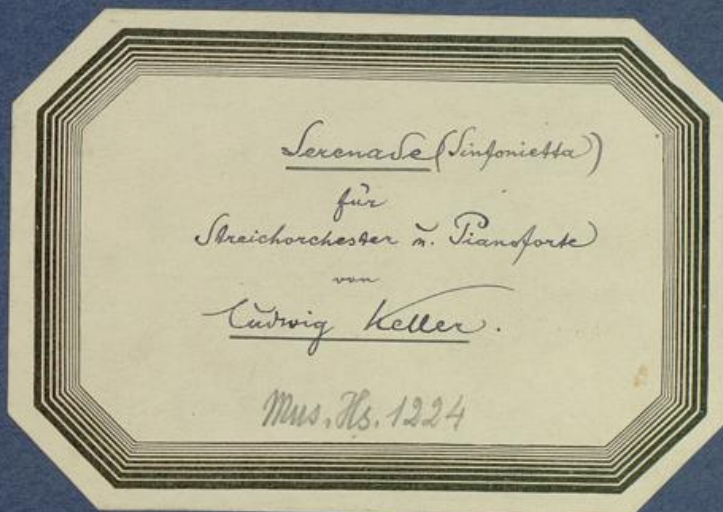 Serenade (Sinfonietta)
für
Streichorchester u. Pianoforte
von
Ludwig Keller.
Mus. Hs. 1224